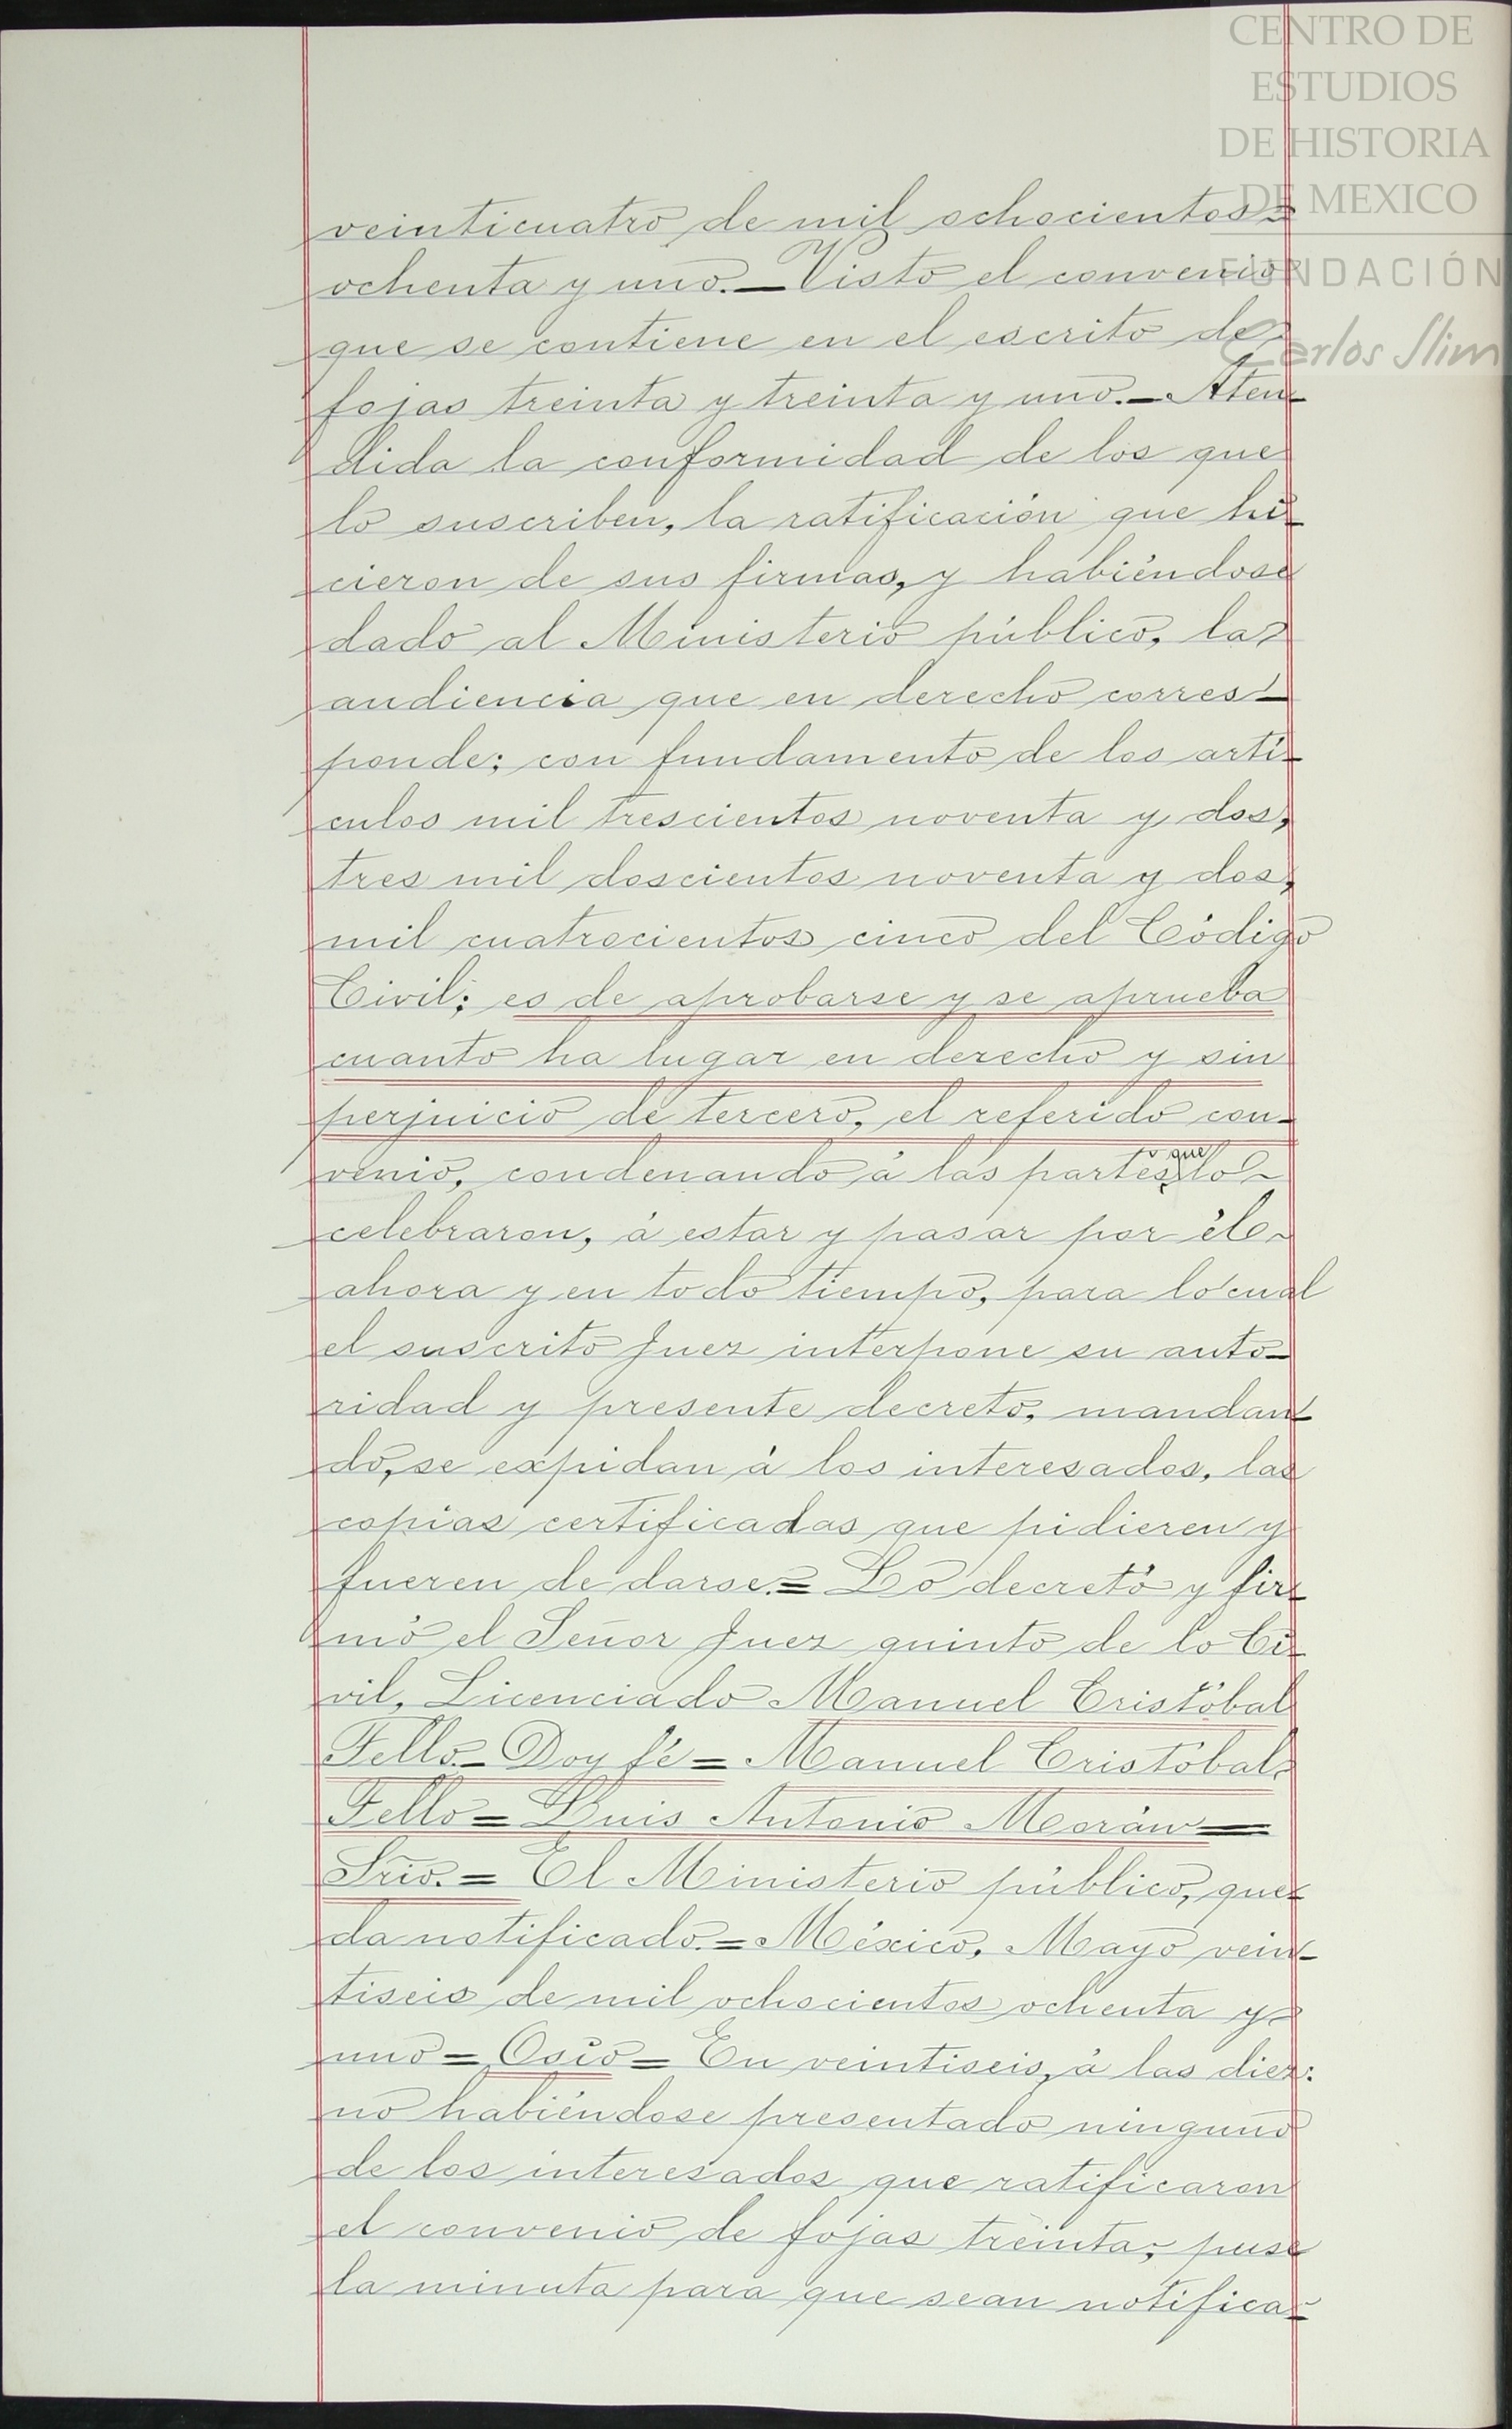 CENTRO DE
ESTUDIOS
DE HISTORIA
DE MEXICO
FUNDACIÓN
Carlos Slim
veinticuatro de mil ochocientos=
ochenta y uno.—Visto el convenio
que se contiene en el escrito de
fojas treinta y treinta y uno.—Aten-
dida la conformidad de los que
lo suscriben, la ratificación que hi-
cieron de sus firmas, y habiéndose
dado al Ministerio público, la
audiencia que en derecho corres-
ponde; con fundamento de los artí-
culos mil trescientos noventa y dos,
tres mil doscientos noventa y dos,
mil cuatrocientos cinco del Código
Civil; es de aprobarse y se aprueba
cuanto ha lugar en derecho y sin
perjuicio de tercero, el referido con-
venio, condenando á las partes que lo
celebraron, á estar y pasar por él
ahora y en todo tiempo, para lo cual
el suscrito Juez interpone su auto-
ridad y presente decreto, mandan-
do, se expidan á los interesados, las
copias certificadas que pidieren y
fueren de darse.= Lo decretó y fir-
mó el Señor Juez quinto de lo Ci-
vil, Licenciado Manuel Cristóbal
Tello.—Doy fé=Manuel Cristóbal
Tello=Luis Antonio Morán—
Srio.=El Ministerio público, que-
da notificado.=México, Mayo vein-
tiseis de mil ochocientos ochenta y
uno=Osio=En veintiseis, á las diez:
no habiéndose presentado ninguno
de los interesados que ratificaron
el convenio de fojas treinta; puse
la minuta para que sean notifica-